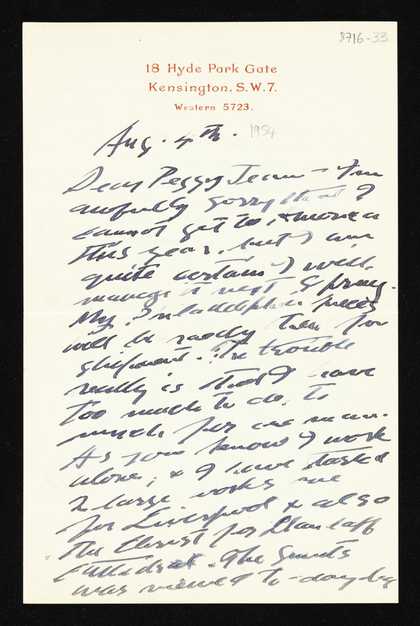 8716-33
18 Hyde Park Gate
Kensington. S.W.7.
Western 5723.
Aug. 4th. 1954
Dear Peggy Jean - I'm
awfully sorry that I
cannot get to America
this year, but I am
quite certain I will
manage it next Spring.
My Philadelphia pieces
will be ready then for
shipment. The trouble
really is that I have
too much to do, to
much for one man.
As you know I work
alone; & I have started
2 large works one
for Liverpool & also
the Christ for Llandaff
Cathedral. The Smuts
was viewed to-day by